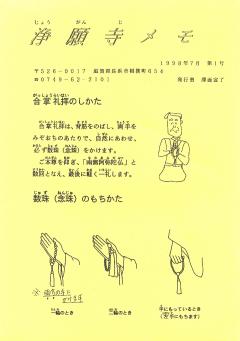 じょう がん じ
浄願寺メモ
1998年7月 第1号
〒526-0017 滋賀県長浜市相撲町654
☎0749-62-7101 発行者 澤面宣了
がっしょうらいはい
合掌礼拝のしかた
がっしょうらいはい
合掌礼拝は、背筋をのばし、両手を
みぞおちのあたりで、自然にあわせ、
必ず数珠(念珠)をかけます。
ご本尊を仰ぎ、「南無阿弥陀仏」と
数回となえ、最後に軽く一礼します。
じゅ ず ねんじゅ
数珠(念珠)のもちかた
※両方の手に
かけます
一輪のとき
二輪のとき
手にもっているとき
(左手にもちます)